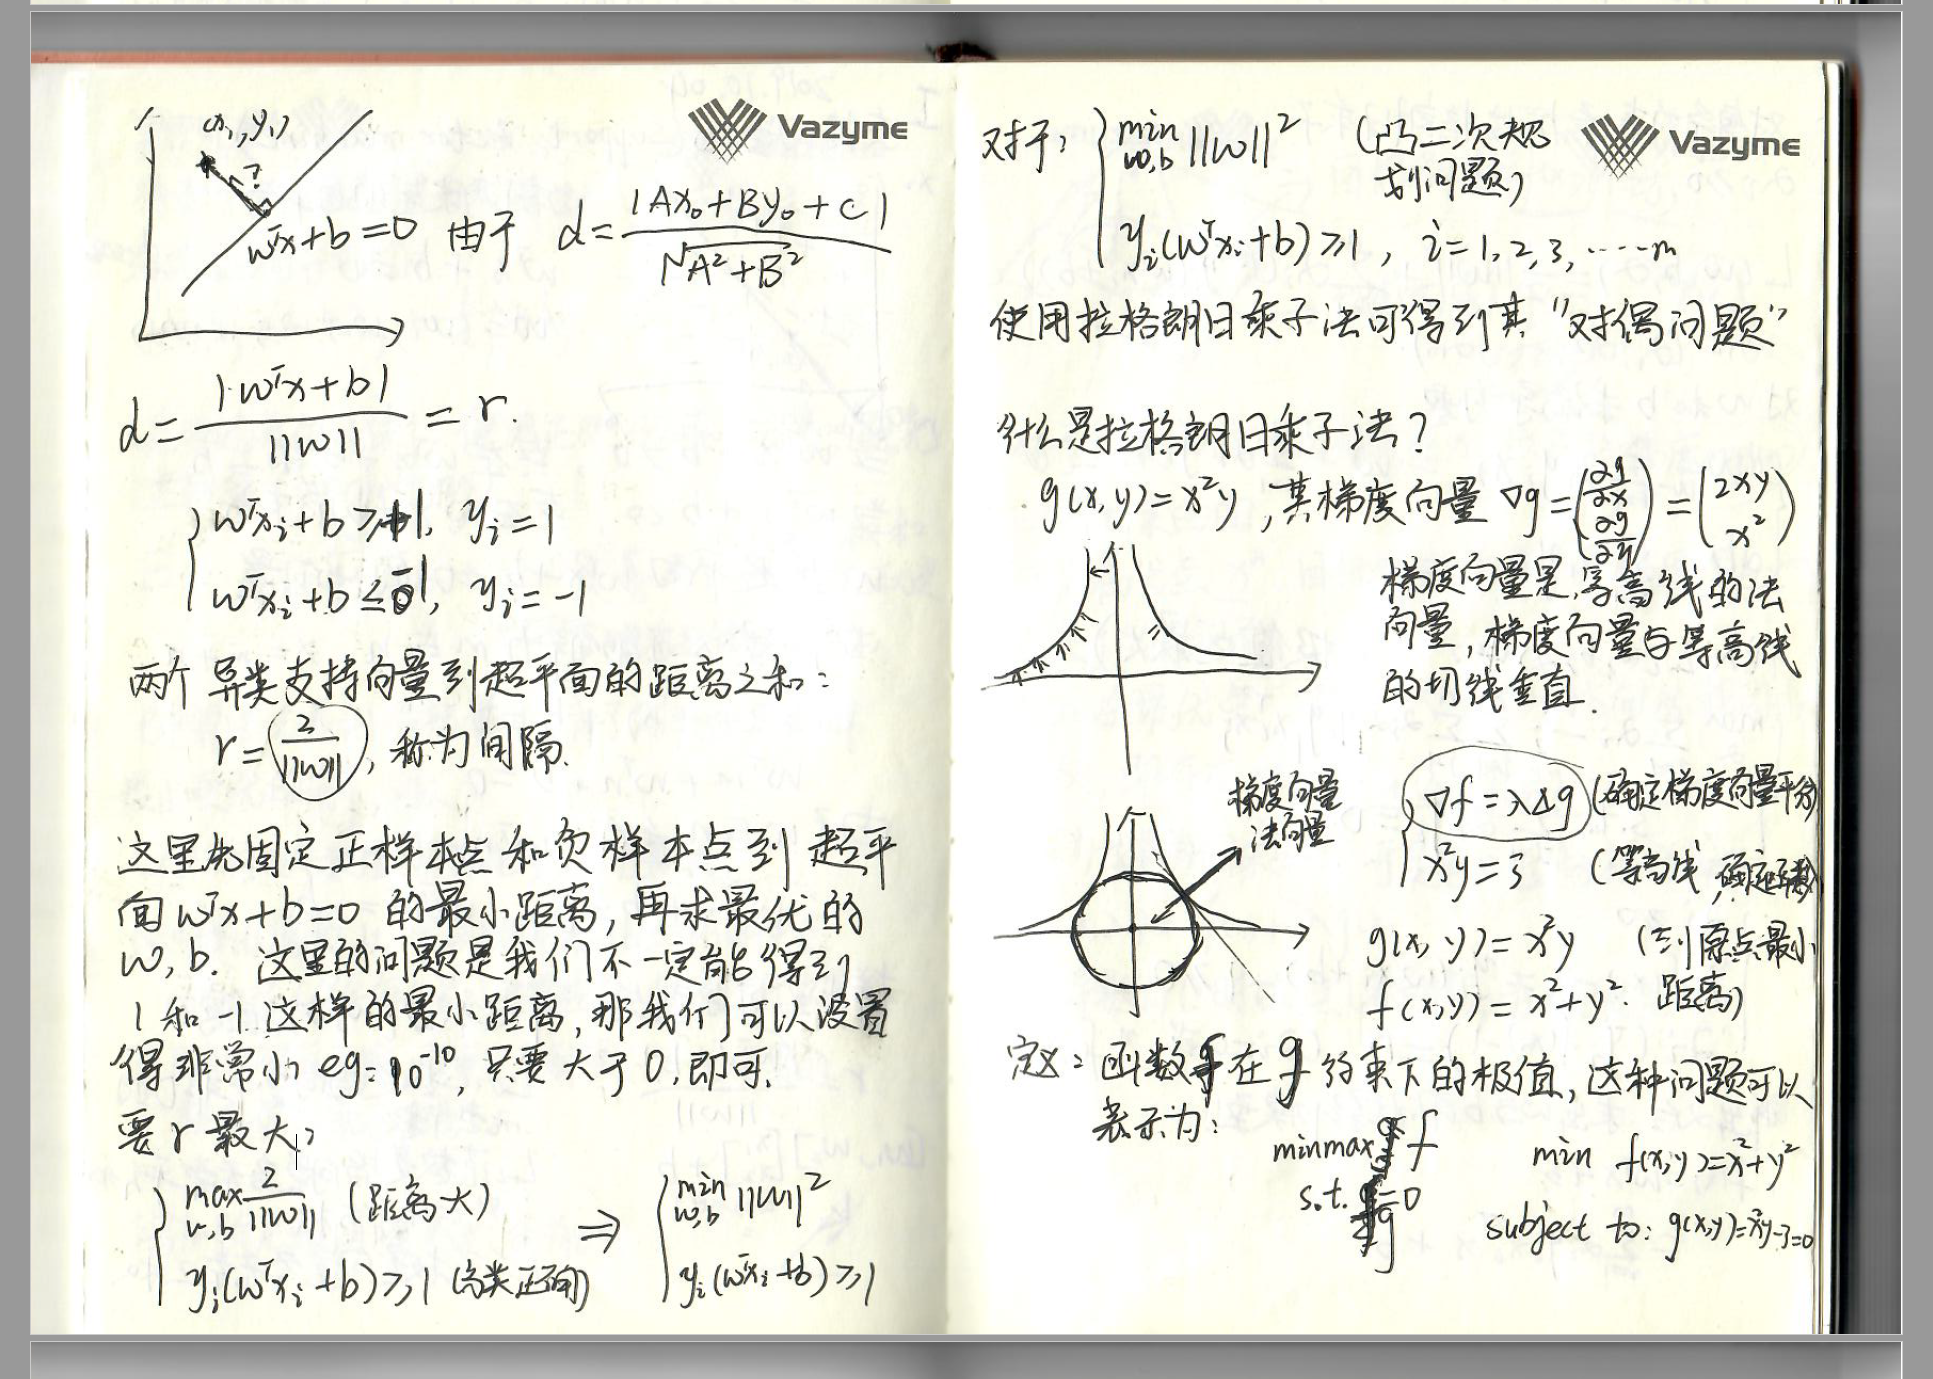 Vazyme
(x₁, y₁)
?
wᵀx+b=0 由于 d=|Ax₀+By₀+C| / √(A²+B²)
d=|wᵀx+b| / ||w|| = r.
{ wᵀxᵢ+b ≥ +1, yᵢ=1
wᵀxᵢ+b ≤ -1, yᵢ=-1
两个异类支持向量到超平面的距离之和:
r= 2/||w||, 称为间隔.
这里先固定正样本点和负样本点到超平
面wᵀx+b=0 的最小距离, 再求最优的
w, b. 这里的问题是我们不一定能得到
1和-1这样的最小距离, 那我们可以设置
得非常小 eg: 10⁻¹⁰, 只要大于0,即可.
要r最大:
{ max w,b 2/||w|| (距离大) ⇒ { min w,b ||w||²
yᵢ(wᵀxᵢ+b)≥1 (分类正确) yᵢ(wᵀxᵢ+b)≥1
Vazyme
对于: { min w,b ||w||² (凸二次规
划问题)
yᵢ(wᵀxᵢ+b)≥1, i=1,2,3,……m
使用拉格朗日乘子法可得到其"对偶问题"
什么是拉格朗日乘子法?
g(x,y)=x²y, 其梯度向量 ∇g=(∂g/∂x ∂g/∂y)=(2xy x²)
梯度向量是等高线的法
向量, 梯度向量与等高线
的切线垂直.
梯度向量
法向量
{ ∇f=λΔg (确定梯度向量平行)
x²y=3 (等高线,
g(x,y)=x²y (到原点最小
f(x,y)=x²+y². 距离)
定义: 函数f在g约束下的极值, 这种问题可以
表示为:
minmax f
s.t. g=0
min f(x,y)=x²+y²
subject to: g(x,y)=x²y-3=0